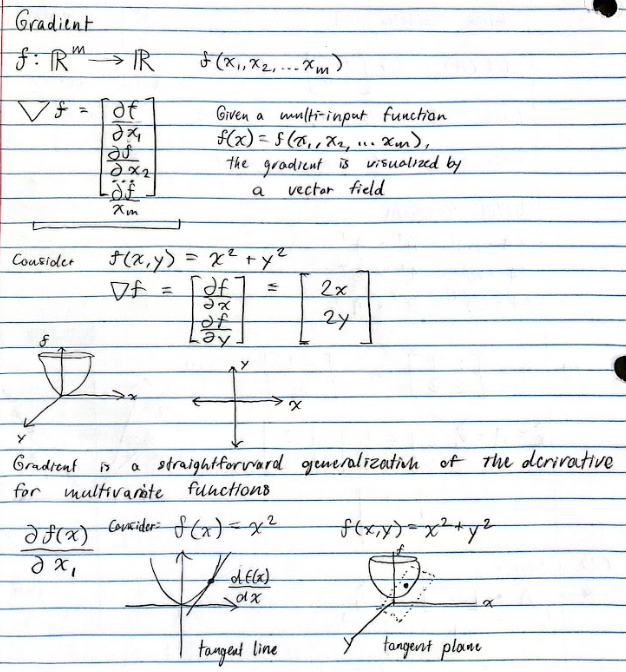 Gradient
f: ℝᵐ → ℝ f(x₁, x₂, ... xₘ)
∇f = [∂f/∂x₁ ∂f/∂x₂ ... ∂f/xₘ]
Given a multi-input function
f(x) = f(x₁, x₂, ... xₘ),
the gradient is visualized by
a vector field
Consider f(x,y) = x² + y²
∇f = [∂f/∂x ∂f/∂y] = [2x 2y]
f
x
y
y
x
Gradient is a straightforward generalization of the derivative
for multivariate functions
∂f(x)/∂x₁ Consider: f(x) = x² f(x,y) = x² + y²
df(x)/dx
tangent line
f
x
y
tangent plane